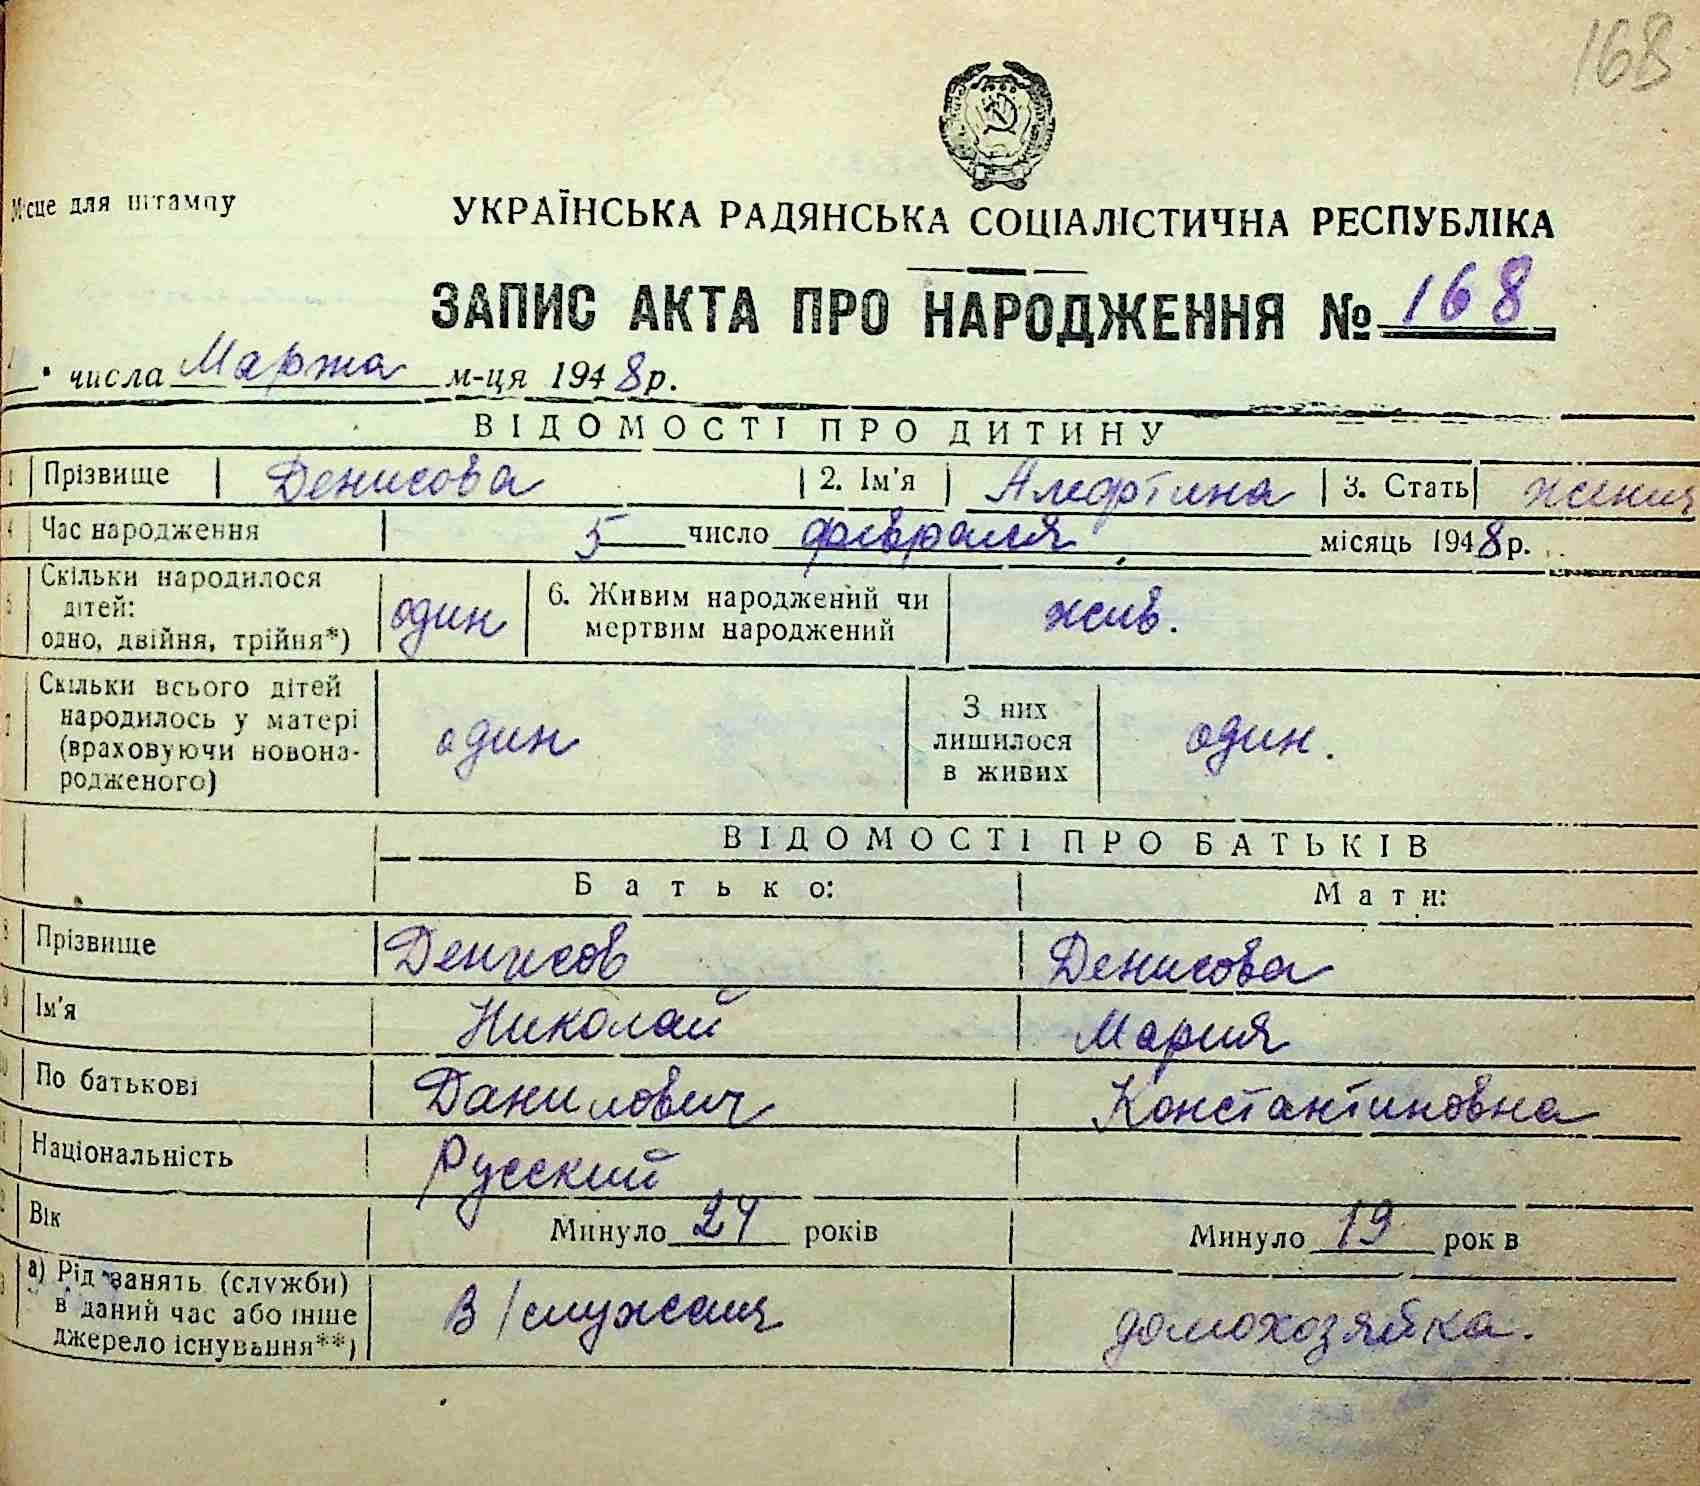 168
Місце для штампу
УКРАЇНСЬКА РАДЯНСЬКА СОЦІАЛІСТИЧНА РЕСПУБЛІКА
ЗАПИС АКТА ПРО НАРОДЖЕННЯ № 168
числа Марта м-ця 1948 р.
ВІДОМОСТІ ПРО ДИТИНУ
1 Прізвище Денисова 2. Ім'я Алефтина 3. Стать женск
4 Час народження 5 число февраля місяць 1948 р.
5 Скільки народилося дітей: одно, двійня, трійня*) один 6. Живим народжений чи мертвим народжений жив.
7 Скільки всього дітей народилось у матері (враховуючи новонародженого) один З них лишилося в живих один.
ВІДОМОСТІ ПРО БАТЬКІВ
Батько: Мати:
8 Прізвище Денисов Денисова
9 Ім'я Николай Мария
10 По батькові Данилович Константиновна
Національність Русский
Вік Минуло 24 років Минуло 19 рок в
а) Рід занять (служби) в даний час або інше джерело існування**) В/служащ домохозяйка.